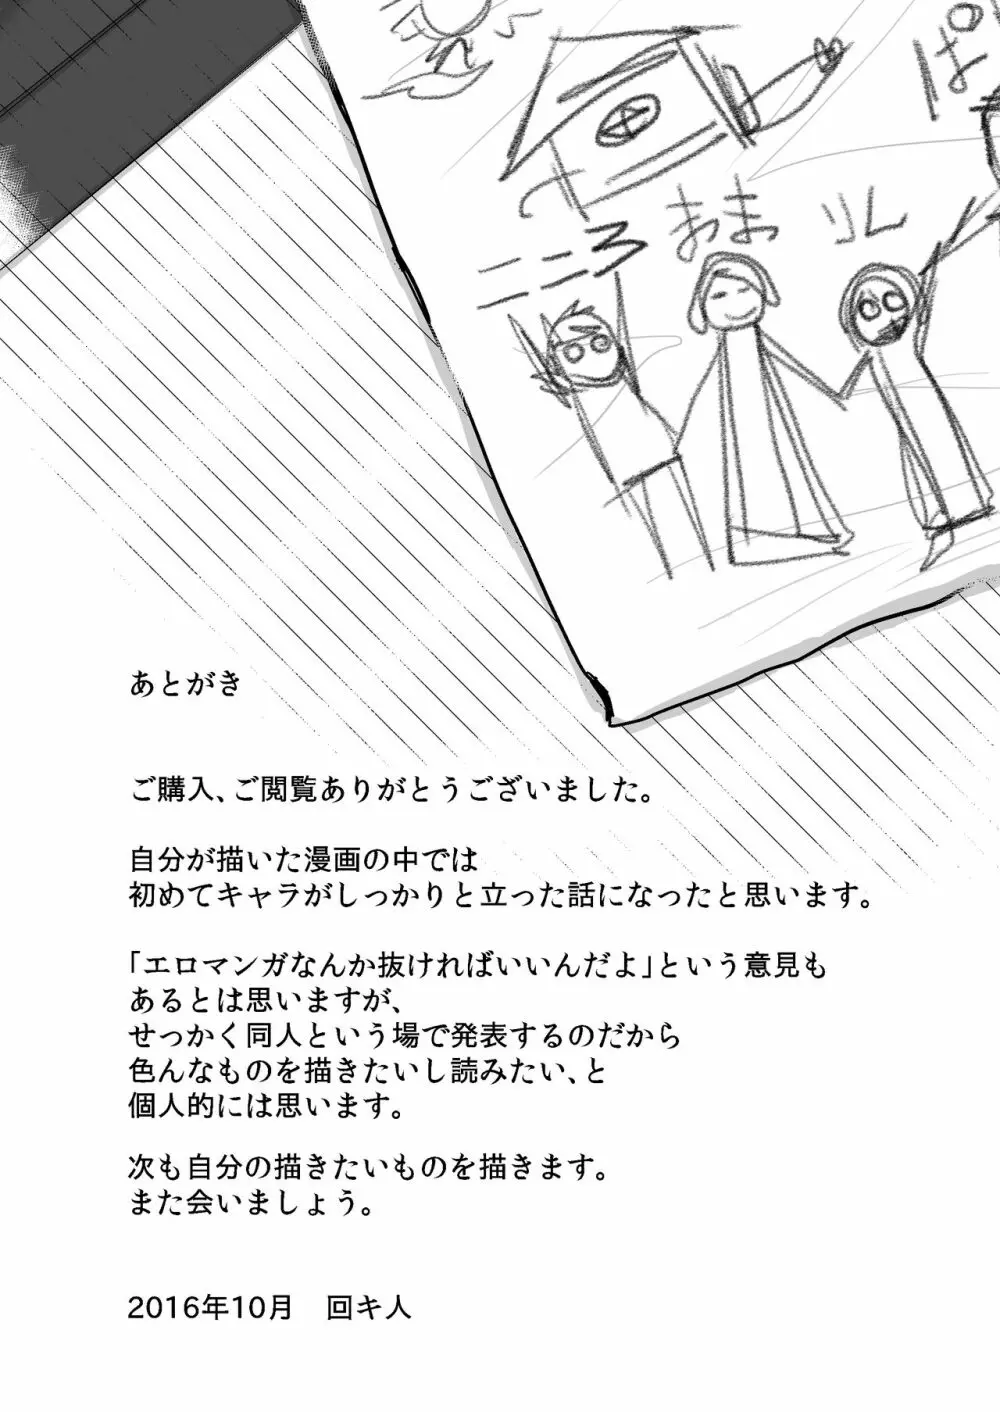 こころ
おまりん
ぱ
あとがき
ご購入、ご閲覧ありがとうございました。
自分が描いた漫画の中では
初めてキャラがしっかりと立った話になったと思います。
「エロマンガなんか抜ければいいんだよ」という意見も
あるとは思いますが、
せっかく同人という場で発表するのだから
色んなものを描きたいし読みたい、と
個人的には思います。
次も自分の描きたいものを描きます。
また会いましょう。
2016年10月　回キ人